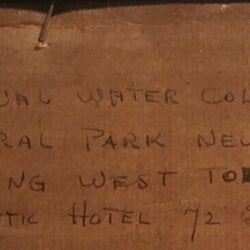 UAL WATER COL
RAL PARK NEW
NG WEST TO
TIC HOTEL 72